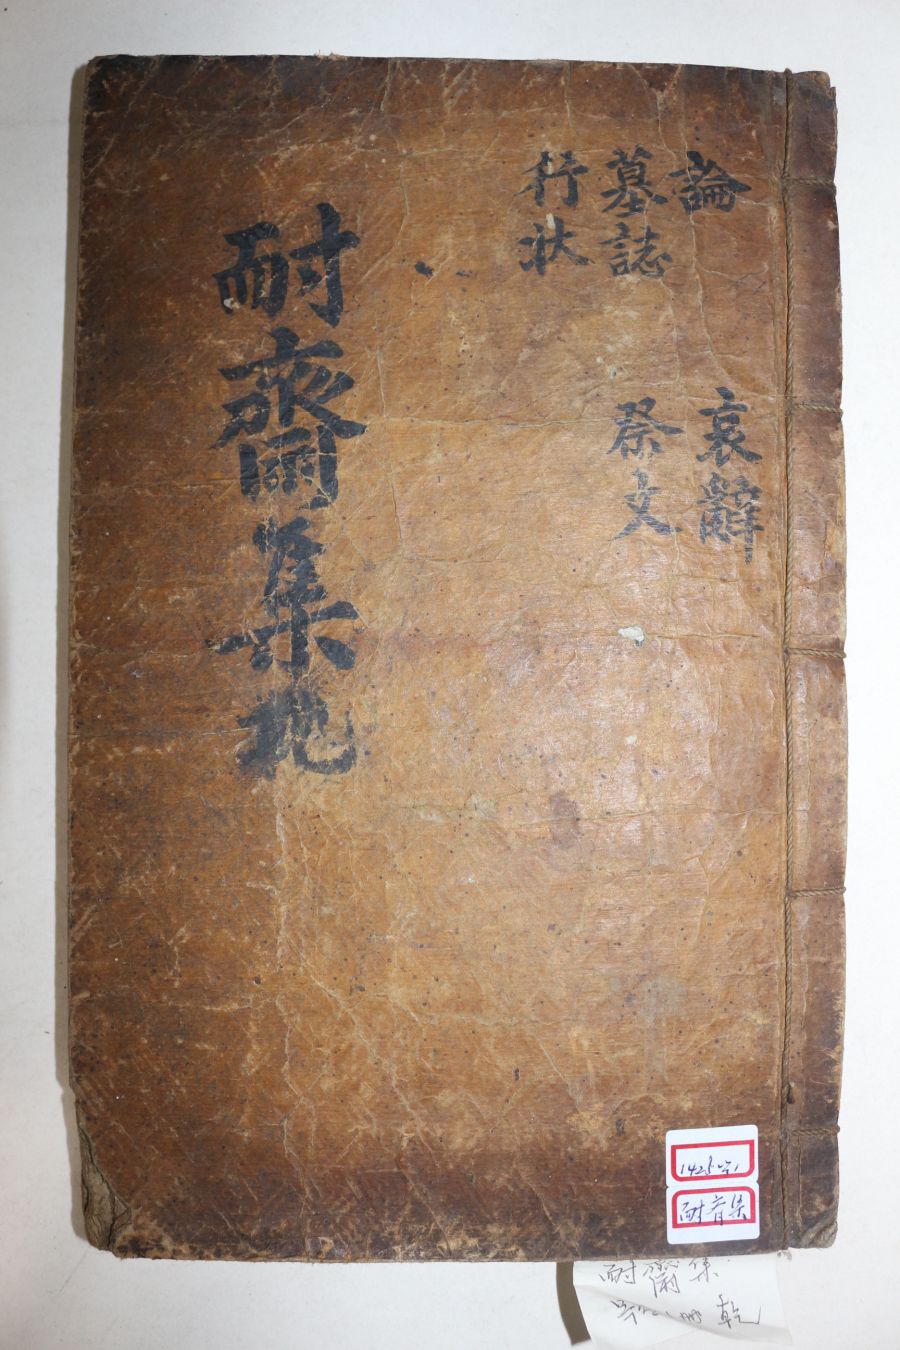 論
哀辭
墓誌
祭文
行狀
耐齋集 地
耐齋集
耐齋集
乾